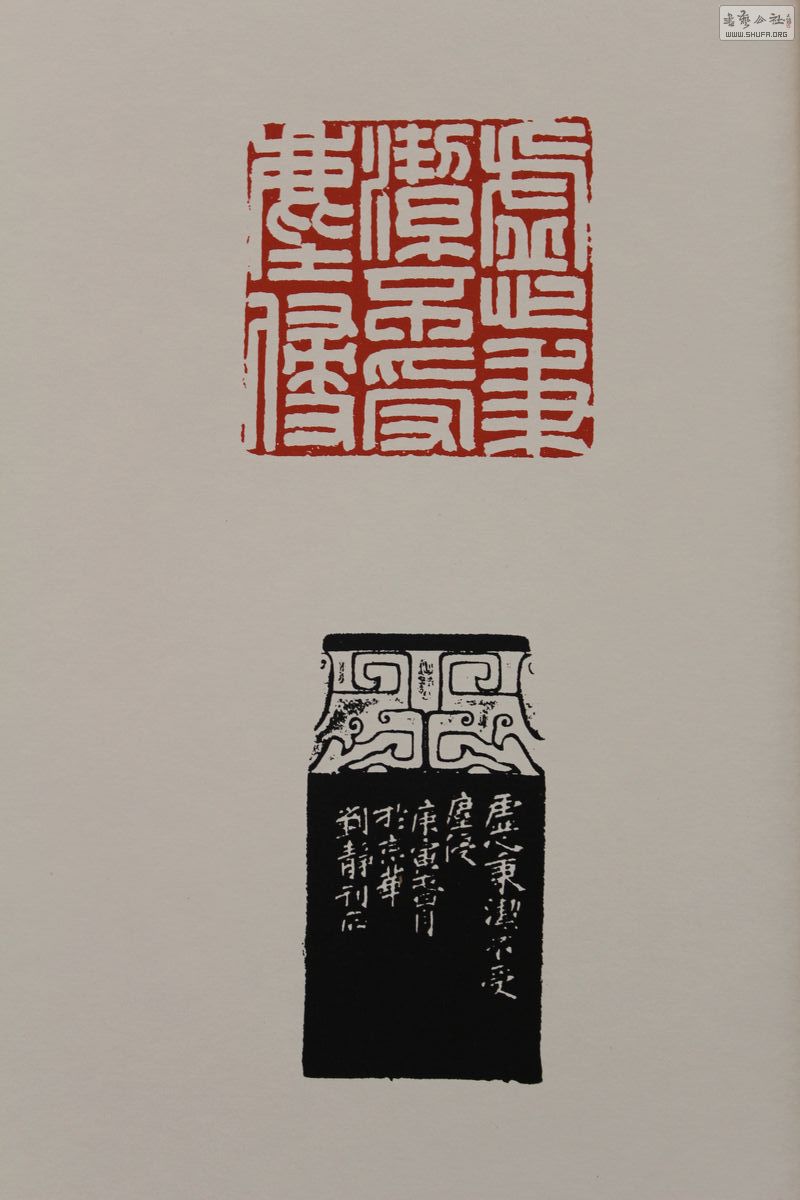 書藝公社
WWW.SHUFA.ORG
虛心秉
潔不受
塵侵
虛心秉潔不受
塵侵
庚寅 月
於京華
劉靜刊石